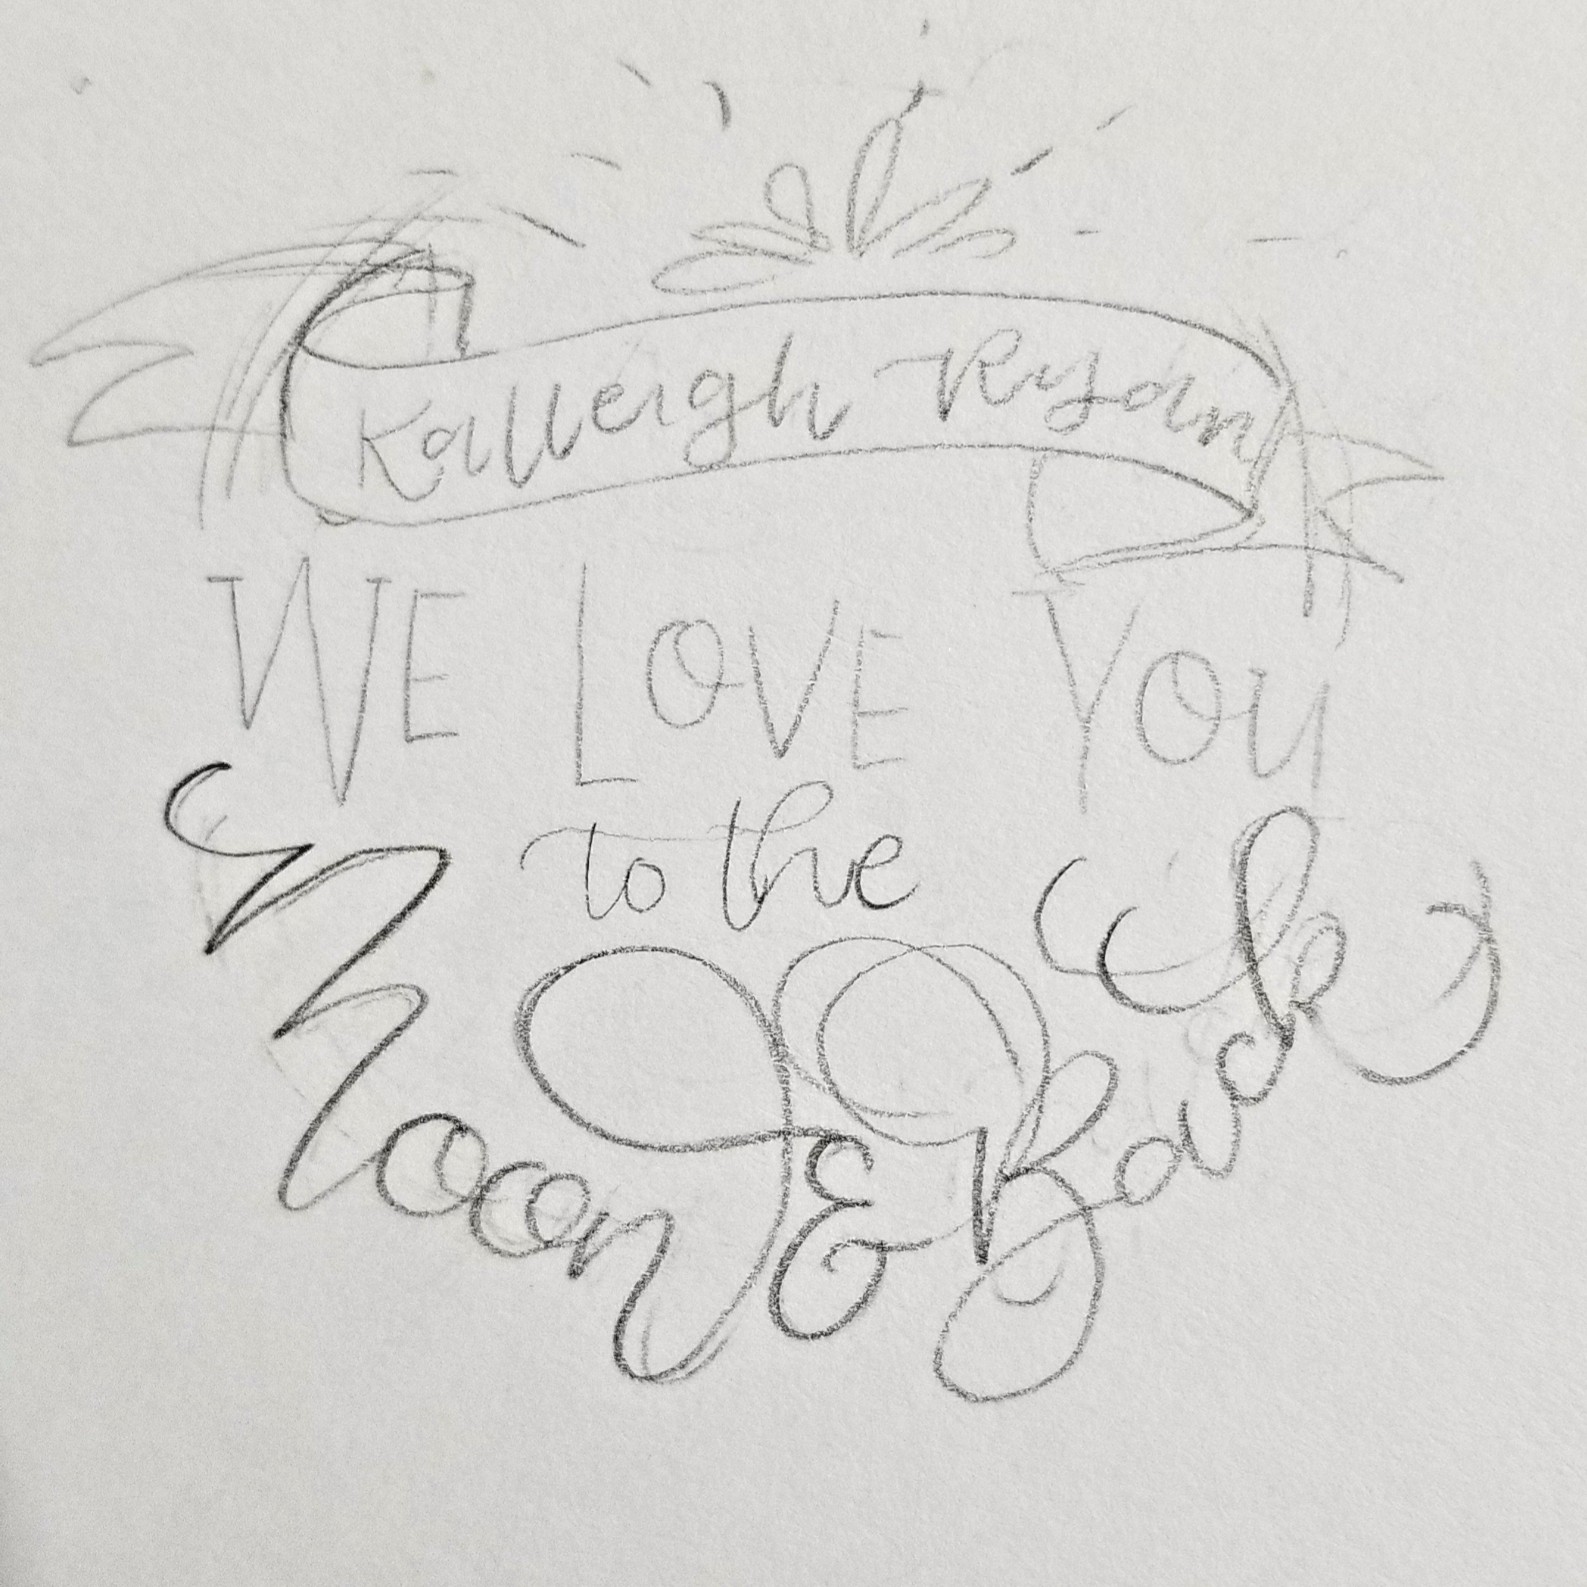 Kalleigh Ryan
WE LOVE YOU
to the
Moon & Back